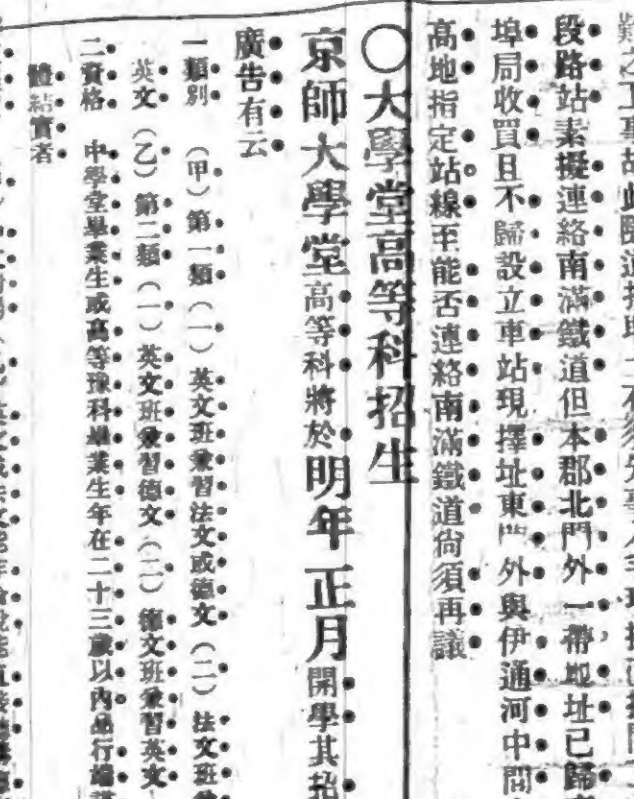 段路站素擬連絡南滿鐵道但本郡北門外一帶地址已歸
埠局收買且不歸設立車站現擇址東門外與伊通河中間
高地指定站線至能否連絡南滿鐵道尙須再議
〇大學堂高等科招生
京師大學堂高等科將於明年正月開學其招
廣告有云
一類別　（甲）第一類（一）英文班兼習法文或德文（二）法文班
英文（乙）第二類（一）英文班兼習德文（二）德文班兼習英文
二資格　中學堂畢業生或高等豫科畢業生年在二十三歲以內品行端
體結實者